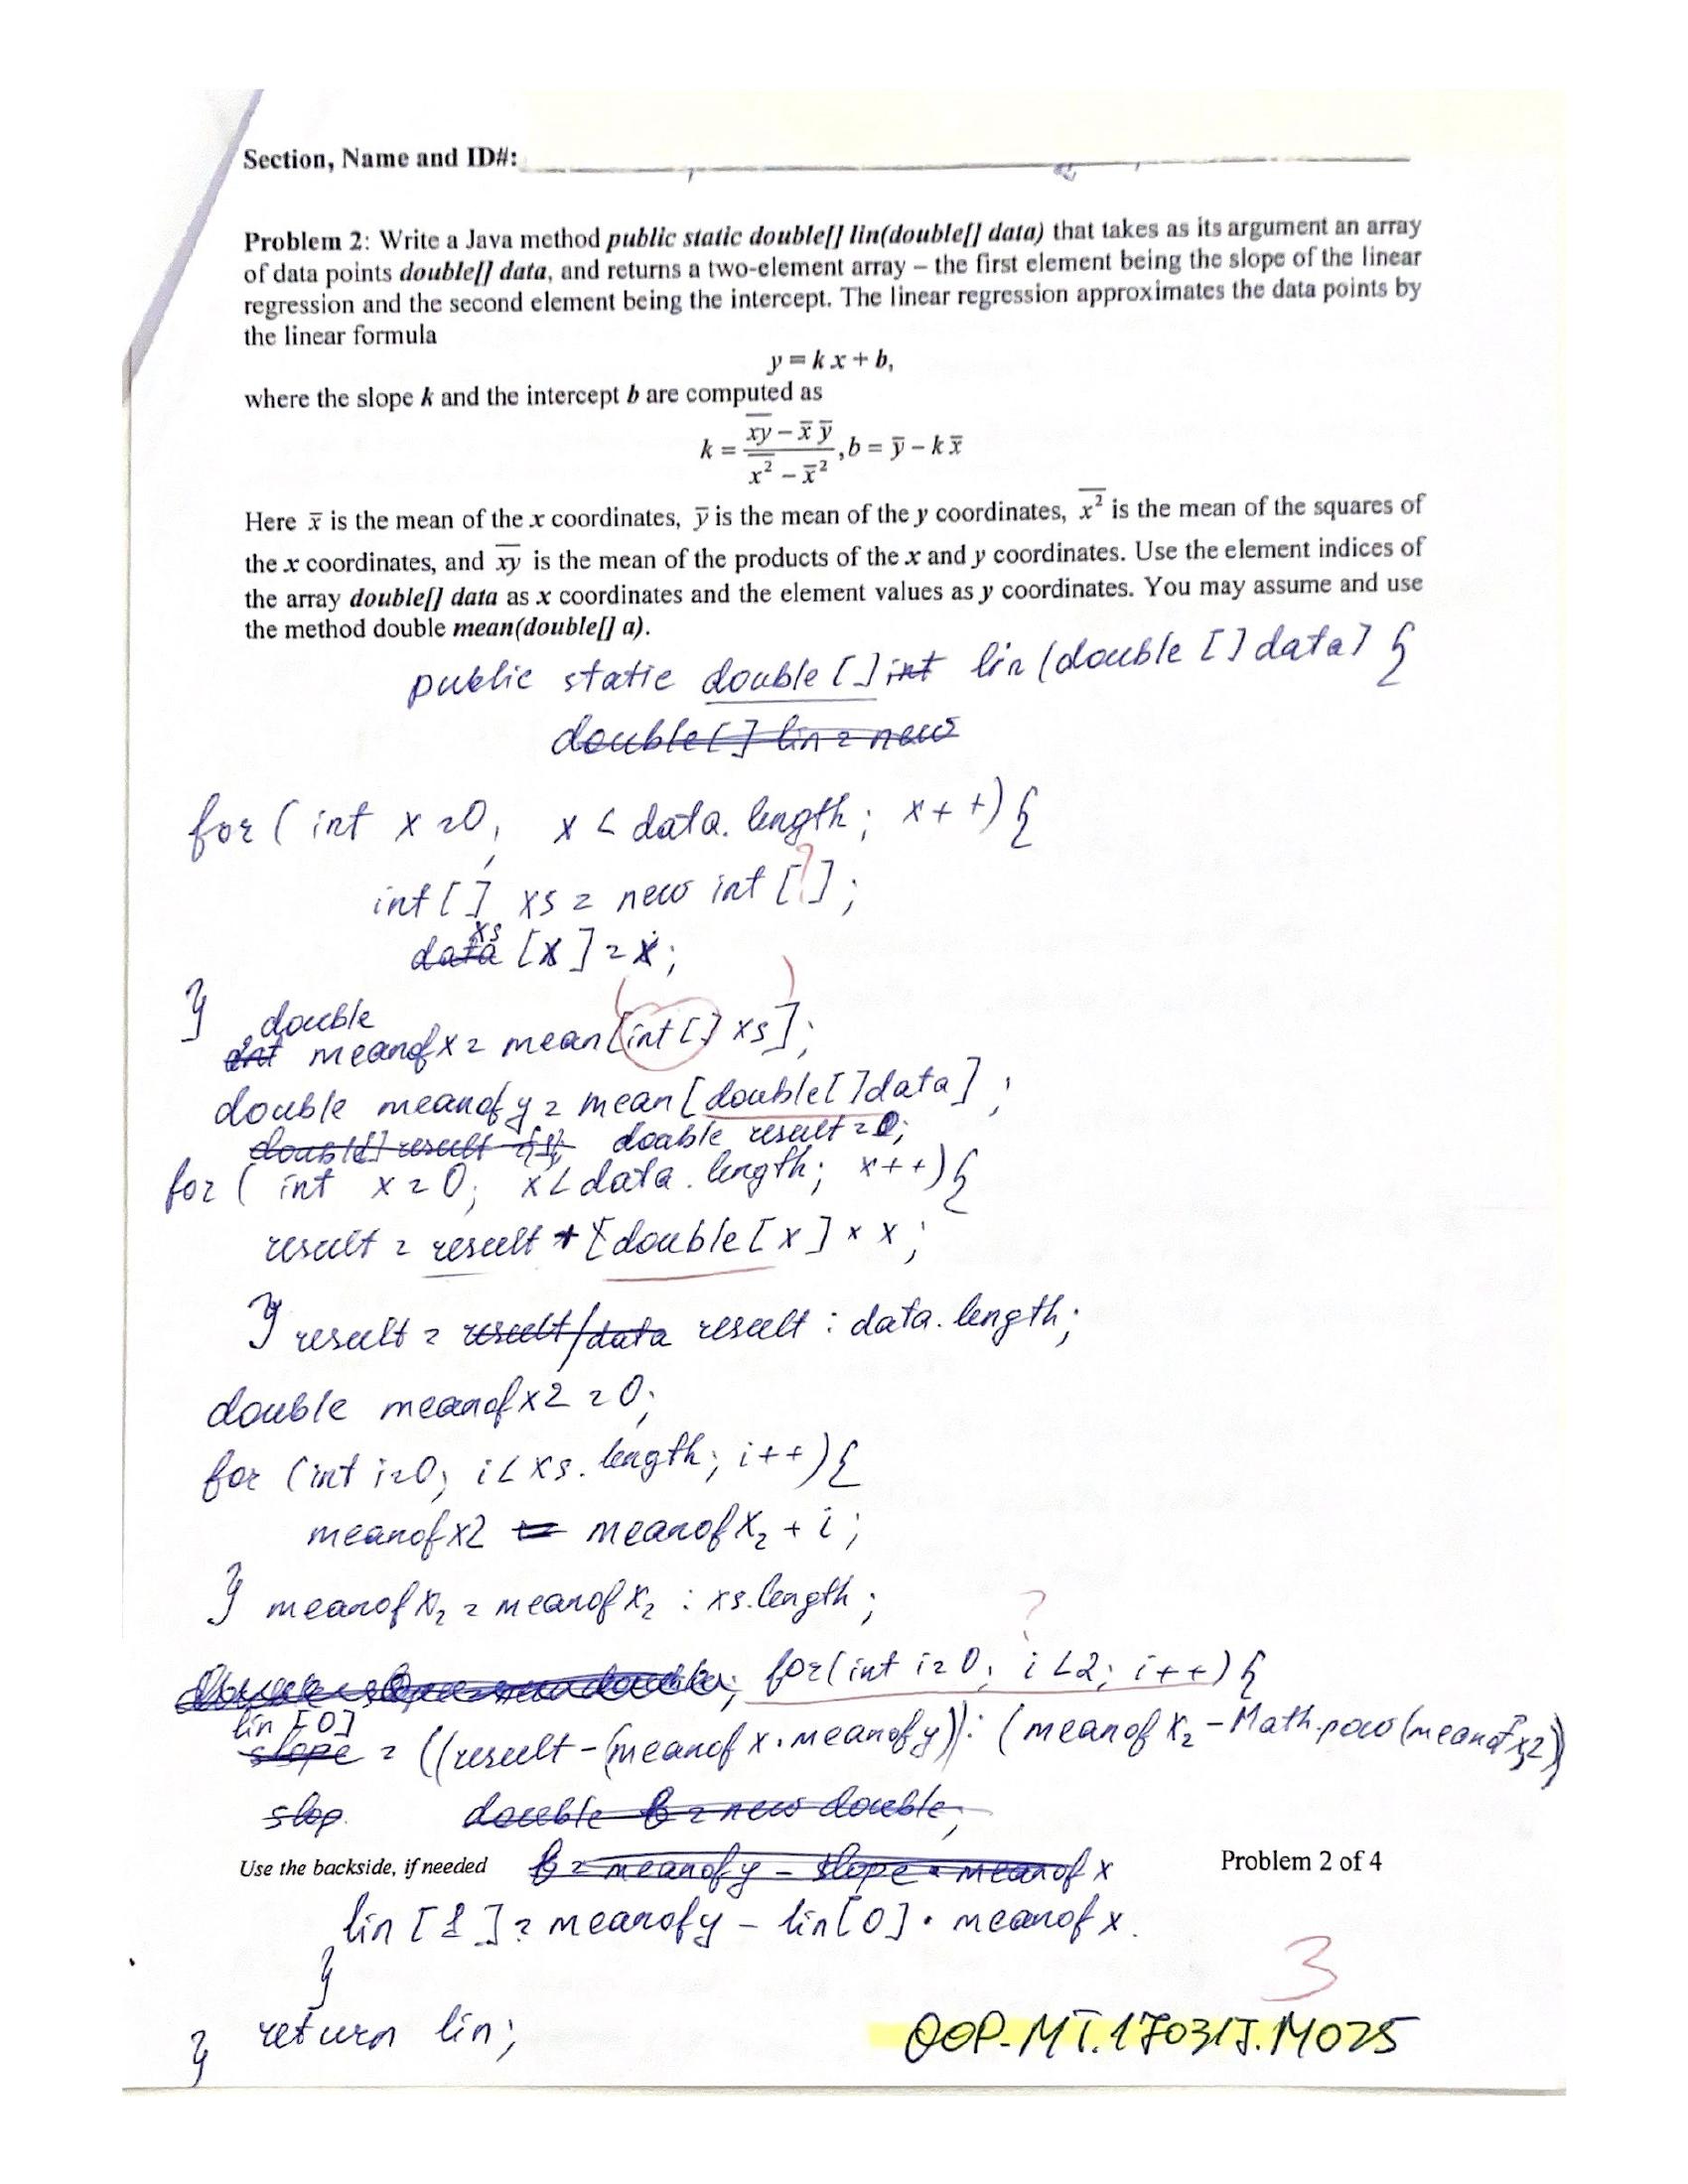 Section, Name and ID#:
Problem 2: Write a Java method public static double[] lin(double[] data) that takes as its argument an array
of data points double[] data, and returns a two-element array – the first element being the slope of the linear
regression and the second element being the intercept. The linear regression approximates the data points by
the linear formula
y = k x + b,
where the slope k and the intercept b are computed as
k = (x̅y̅ – x̅ y̅) / (x̅²̅ – x̅²), b = y̅ – k x̅
Here x̅ is the mean of the x coordinates, y̅ is the mean of the y coordinates, x̅²̅ is the mean of the squares of
the x coordinates, and x̅y̅ is the mean of the products of the x and y coordinates. Use the element indices of
the array double[] data as x coordinates and the element values as y coordinates. You may assume and use
the method double mean(double[] a).
public static double [] int lin (double [] data) {
double[] lin = new
for ( int x = 0; x < data. length; x++) {
?
int [] xs = new int [];
xs
data [x] = x;
} double
int meanofx = mean [int [] xs];
double meanofy = mean [double[] data];
double[] result = {}; double result = 0;
for ( int x = 0; x < data. length; x++) {
result = result + [double [x] * x;
} result = result/data result : data. length;
double meanofx2 = 0;
for (int i=0; i < xs. length; i++) {
meanofx2 = meanofx₂ + i;
} meanofx₂ = meanofx₂ : xs.length;
?
for(int i=0; i<2; i++) {
lin [0]
slope = ((result - (meanof x · meanofy)) : (meanof x₂ - Math.pow (meanofx,2))
slop double b = new double;
Use the backside, if needed b = meanofy - slope · meanof x Problem 2 of 4
lin [1] = meanofy - lin[0] · meanof x.
}
3
return lin;
}
OOP-MT.170317.M025